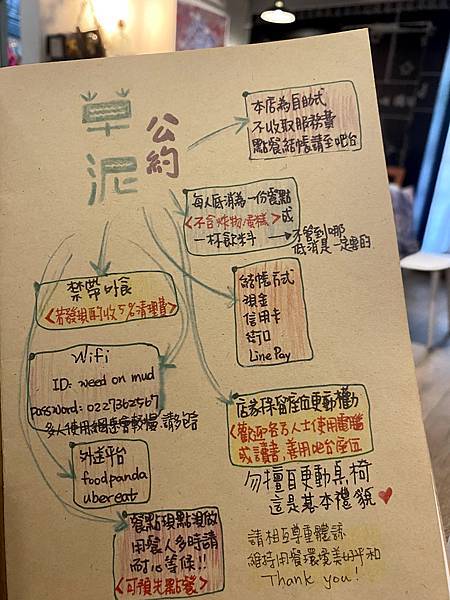 草泥
公約
本店為自助式
不收取服務費
點餐結帳請至吧台
每人低消為一份餐點
<不含炸物.蛋糕>或
一杯飲料
→不管到哪
低消是一定要的
禁帶外食
<若發現酌收5%清理費>
結帳方式
現金
信用卡
街口
Line Pay
Wifi
ID: weed on mud
password: 0227362567
多人使用網速會較慢.請包涵
店家保留座位更動權力
<歡迎各方人士使用電腦
或讀書,善用吧台座位
外送平台
foodpanda
ubereat
勿擅自更動桌椅
這是基本禮貌
餐點現點現做
用餐人多時請
耐心等候!!
<可預先點餐>
請相互尊重體諒
維持用餐環境美好平和
Thank you!